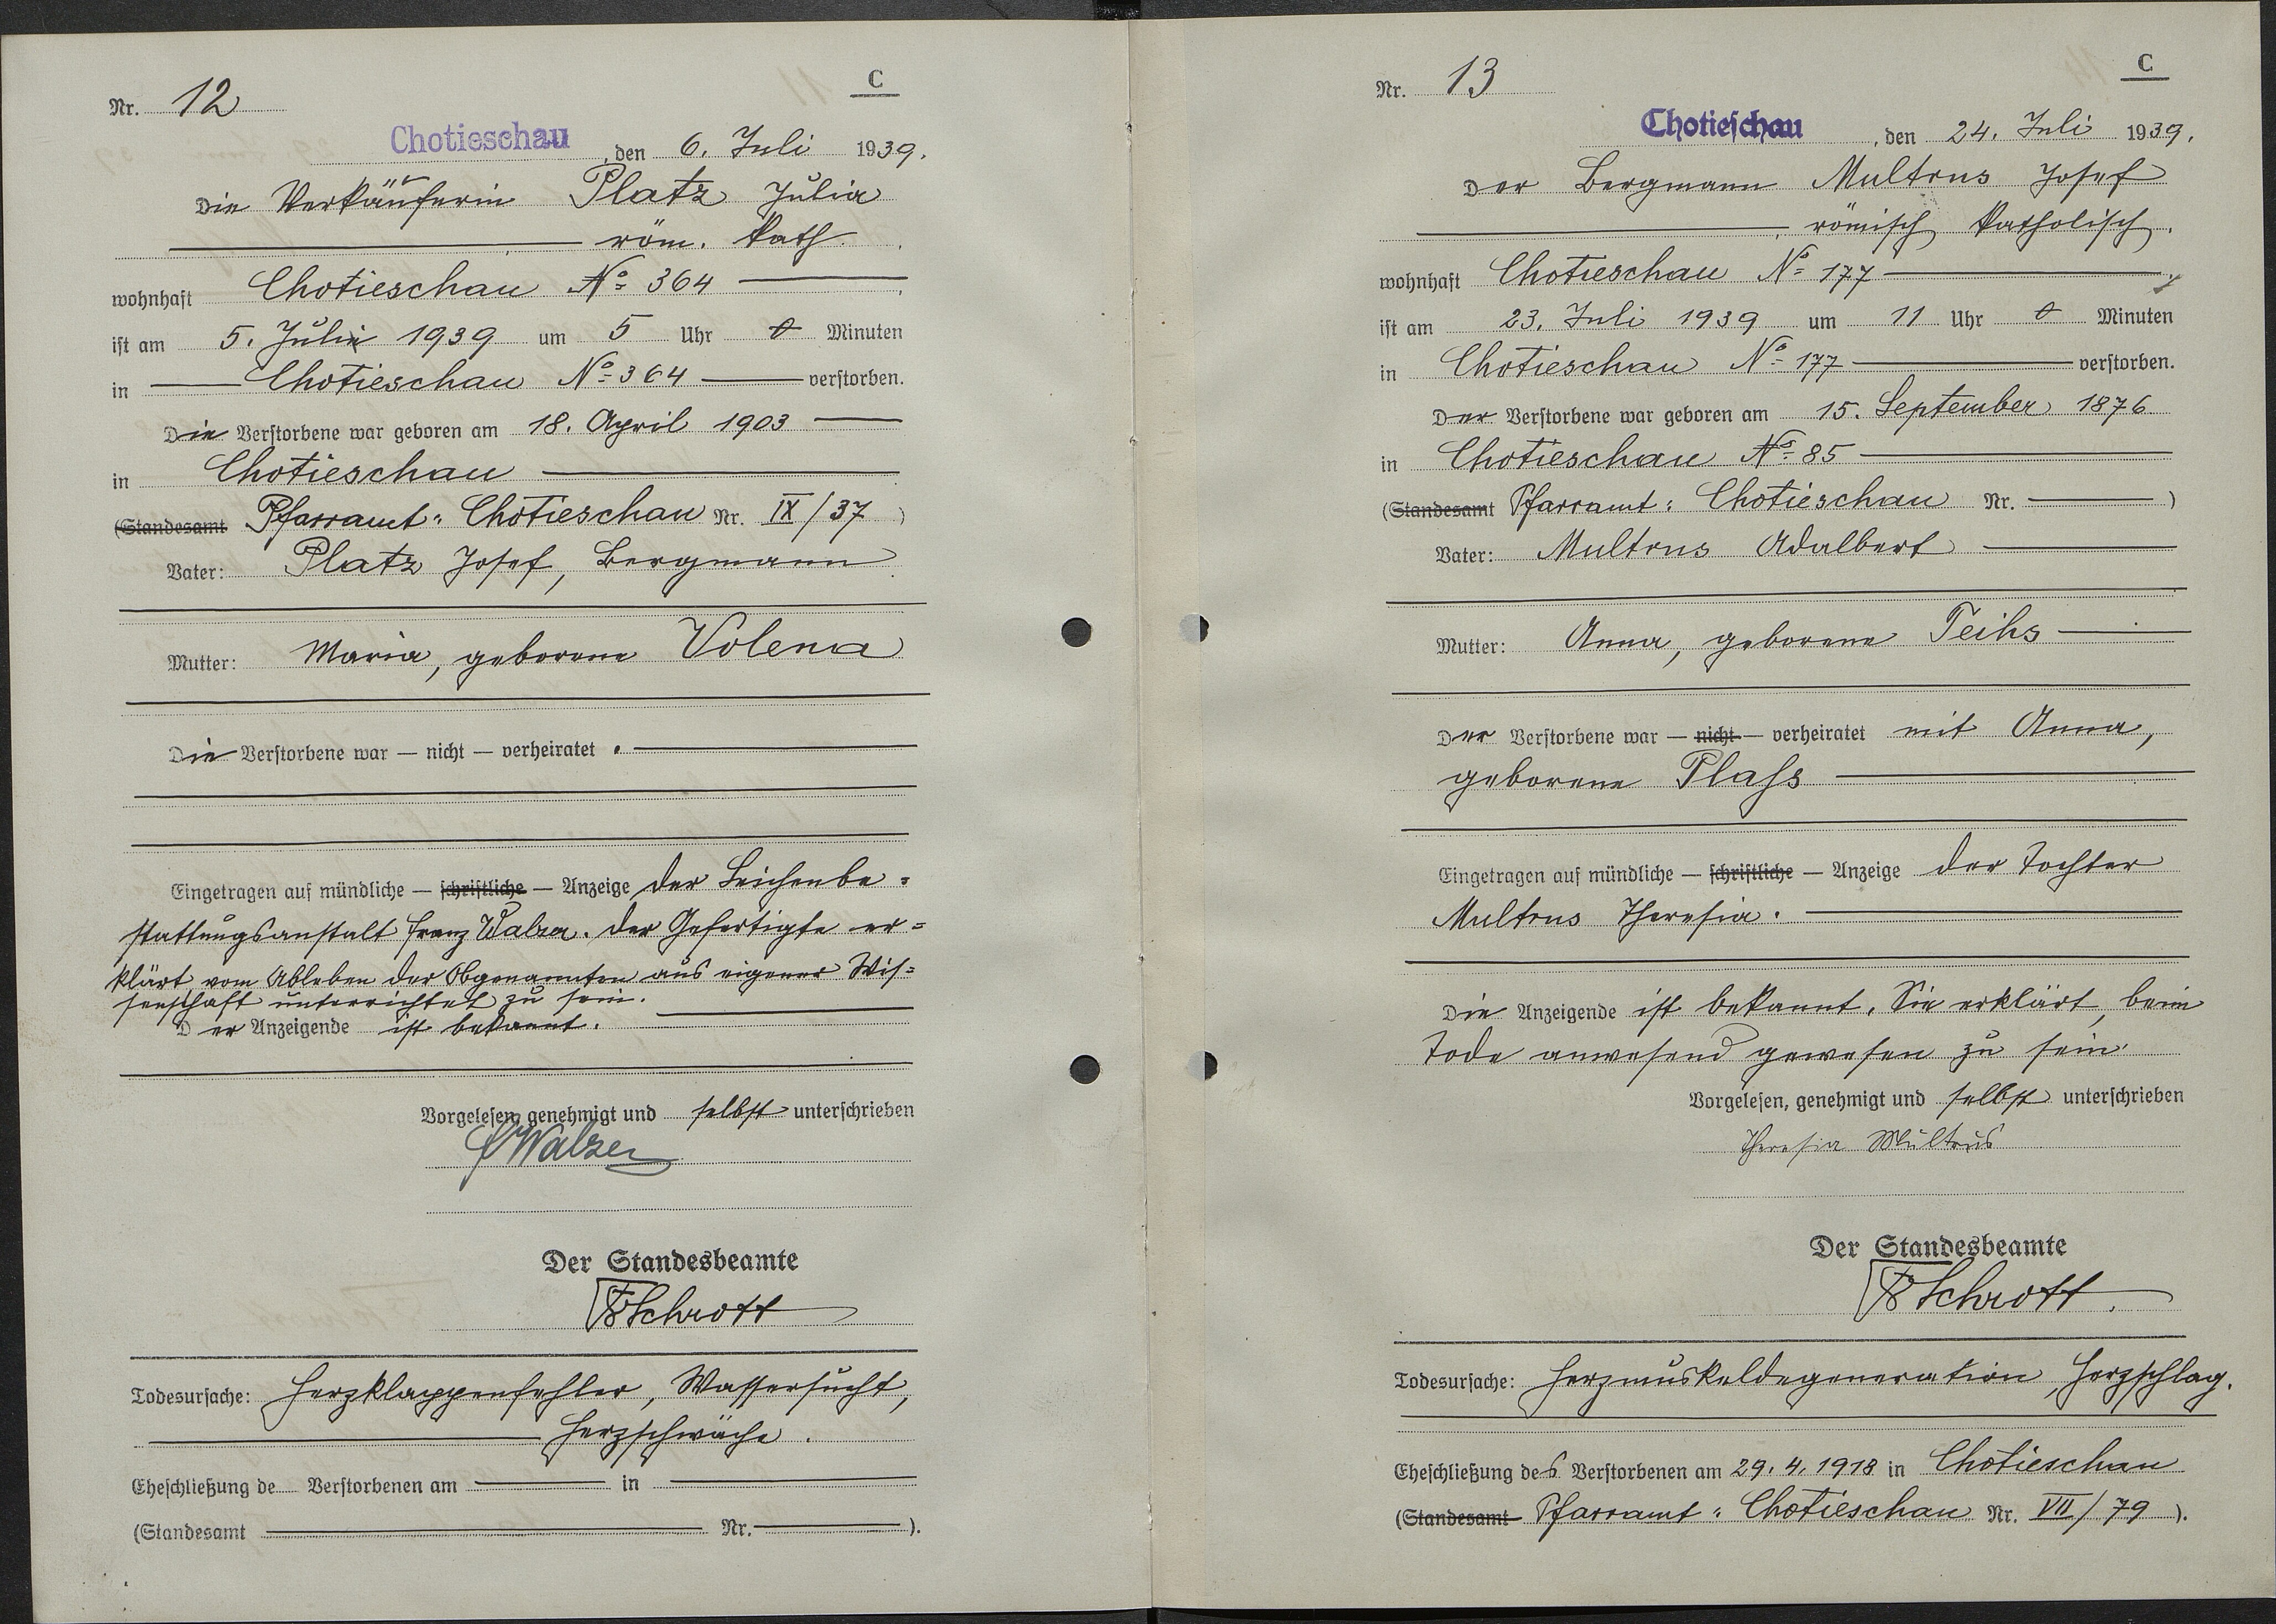 C
Nr. 12
Chotieschau, den 6. Juli 1939.
Die Verkäuferin Platz Julia
röm. kath.
wohnhaft Chotieschau No 364
ist am 5. Juli 1939 um 5 Uhr 0 Minuten
in Chotieschau No 364 verstorben.
Die Verstorbene war geboren am 18. April 1903
in Chotieschau
(Standesamt Pfarramt: Chotieschau Nr. IX/37)
Vater: Platz Josef, Bergmann
Mutter: Maria, geborene Volena
Die Verstorbene war — nicht — verheiratet.
Eingetragen auf mündliche — schriftliche — Anzeige der Leichenbe=
stattungsanstalt Franz Walzer. Der Gefertigte er=
klärt vom Ableben der Obgenannten aus eigener Wis=
senschaft unterrichtet zu sein.
Der Anzeigende ist bekannt.
Vorgelesen, genehmigt und selbst unterschrieben
F Walzer
Der Standesbeamte
Schrott
Todesursache: Herzklappenfehler, Wassersucht,
Herzschwäche.
Eheschließung de Verstorbenen am in
(Standesamt Nr. ).
C
Nr. 13
Chotieschau, den 24. Juli 1939.
Der Bergmann Multrus Josef
, römisch katholisch.
wohnhaft Chotieschau No 177
ist am 23. Juli 1939 um 11 Uhr 0 Minuten
in Chotieschau No 177 verstorben.
Der Verstorbene war geboren am 15. September 1876
in Chotieschau No 85
(Standesamt Pfarramt: Chotieschau Nr. )
Vater: Multrus Adalbert
Mutter: Anna, geborene Teihs
Der Verstorbene war — nicht — verheiratet mit Anna,
geborene Plass
Eingetragen auf mündliche — schriftliche — Anzeige der Tochter
Multrus Theresia.
Die Anzeigende ist bekannt. Sie erklärt, beim
Tode anwesend gewesen zu sein.
Vorgelesen, genehmigt und selbst unterschrieben
Theresia Multrus
Der Standesbeamte
Schrott.
Todesursache: Herzmuskeldegeneration, Herzschlag.
Eheschließung des Verstorbenen am 29. 4. 1918 in Chotieschau
(Standesamt Pfarramt: Chotieschau Nr. VII/79).